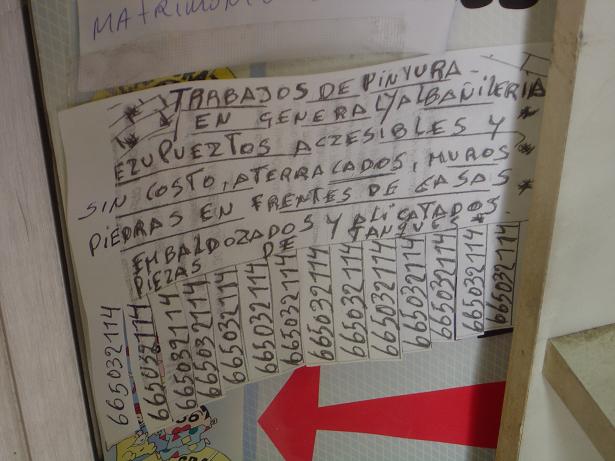 MATRIMONIO
TRABAJOS DE PINTURA
EN GENERAL Y ALBAÑILERIA
EZUPUEZTOS ACZESIBLES Y
SIN COSTO, ATERRACADOS, MUROS
PIEDRAS EN FRENTES DE CASAS
EMBALDOZADOS Y ALICATADOS
PIEZAS DE TANQUES
665032114
665032114
665032114
665032114
665032114
665032114
665032114
665032114
665032114
665032114
665032114
665032114
665032114